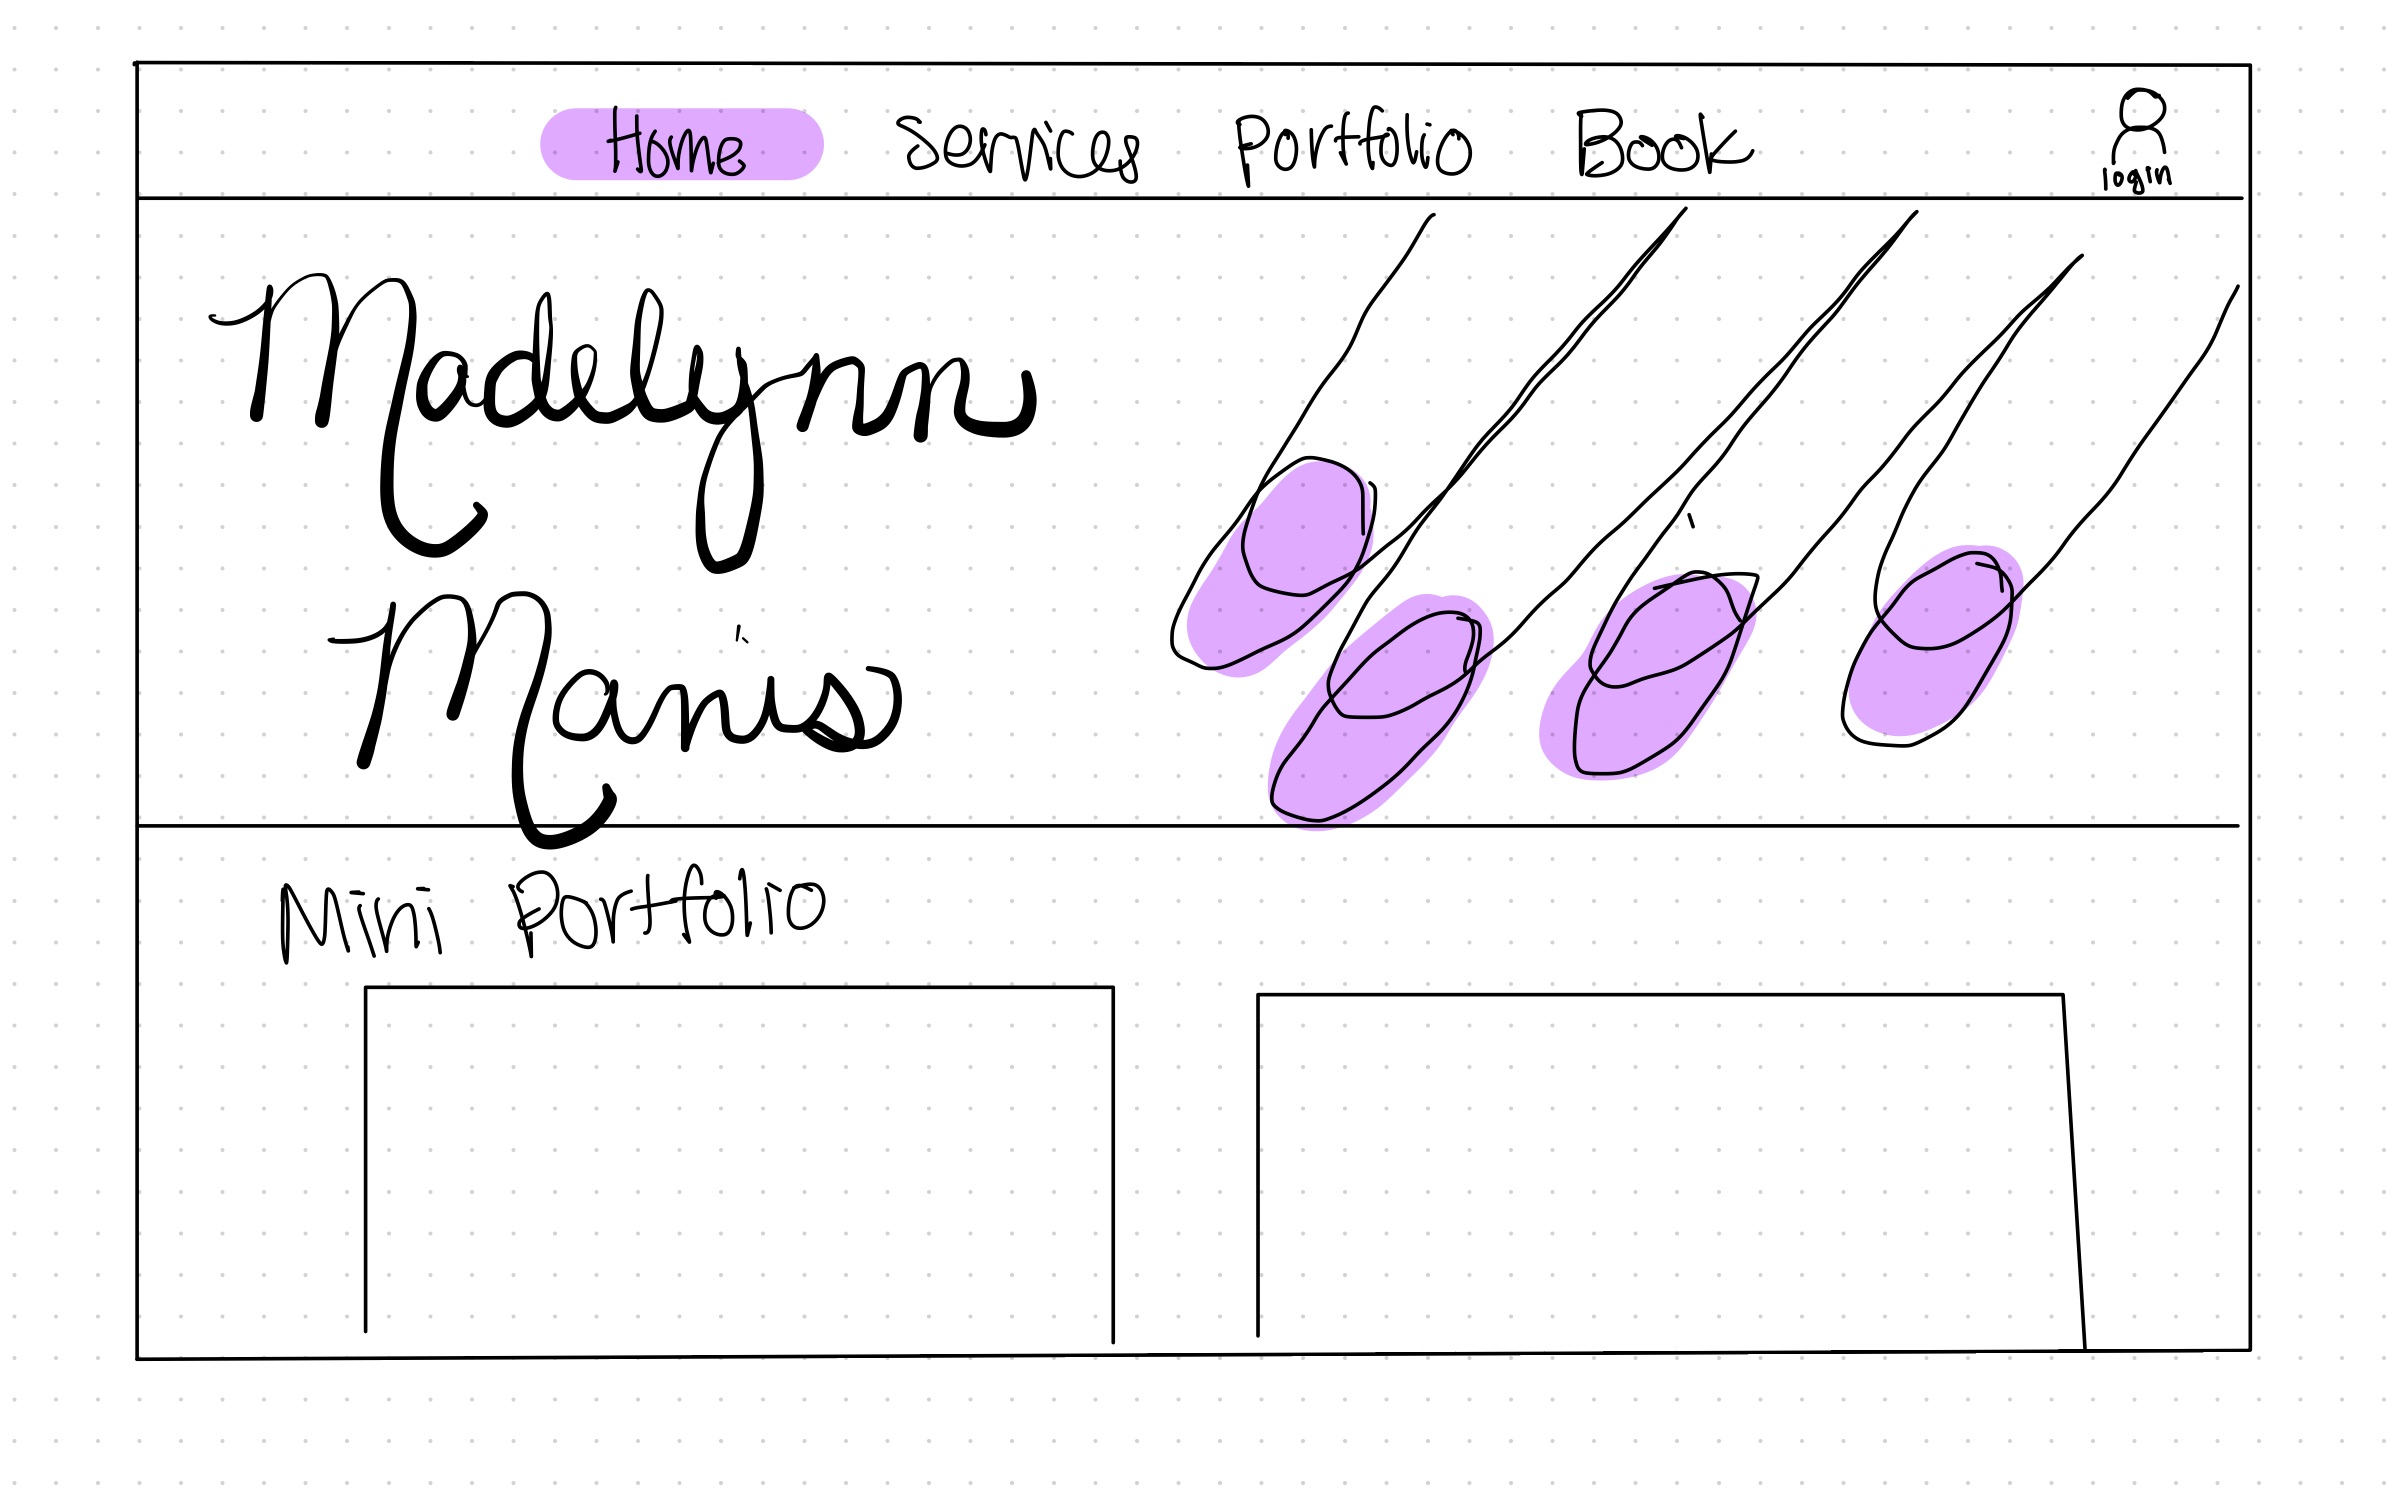 Home Services Portfolio Book
login
Madelynn
Manis
Mini Portfolio